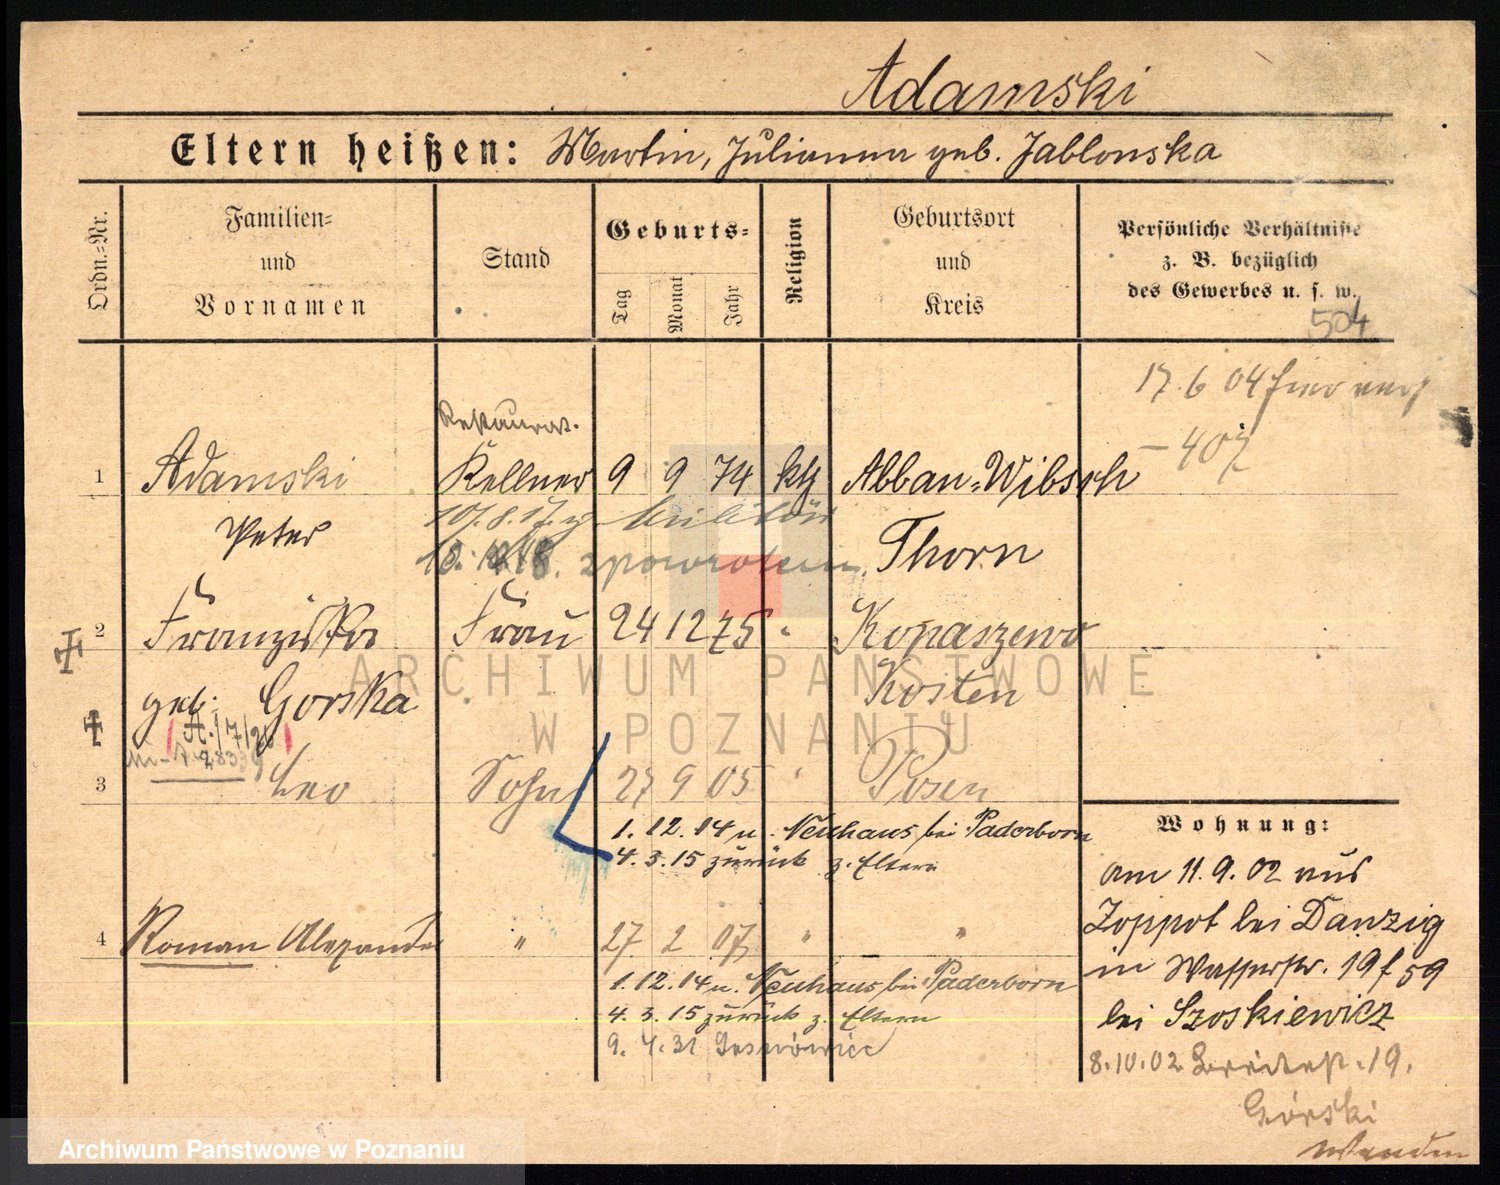 Adamski
Eltern heißen: Martin, Julianna geb. Jablonska
Ordn.-Nr.
Familien-
und
Vornamen
Stand
Geburts-
Tag
Monat
Jahr
Religion
Geburtsort
und
Kreis
Persönliche Verhältnisse
z. B. bezüglich
des Gewerbes u. s. w.
504
17. 6 04
- 407
Restaurat.
1 Adamski Kellner 9 9 74 kth Abbau-Wibsch
Peter
Thorn
18. 12 18. zpowrotem.
2 Franziska Frau 24 12 75 " Kopaszewo
geb. Gorska Kosten
A. 17/26
3 Leo Sohn 27 9 05 " Posen
1. 12. 14 n. Neuhaus bei Paderborn
4. 3. 15 zurück z. Eltern
4 Roman Alexander " 27. 2 07 " "
1. 12. 14 n. Neuhaus bei Paderborn
4. 3. 15 zurück z. Eltern
9. 4. 31
Wohnung:
am 11. 9. 02 aus
Zoppot bei Danzig
in Wasserstr. 19 f 59
bei Szoskiewicz
8. 10. 02 Breitestr. 19.
Górski
ARCHIWUM PAŃSTWOWE
W POZNANIU
Archiwum Państwowe w Poznaniu